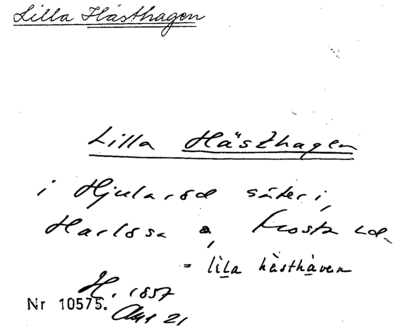 Lilla Hästhagen
Lilla Hästhagen
i Hjularöd säteri,
Harlösa s, Frosta
= lila hästhaven
H. 1857
Nr 10575.
21